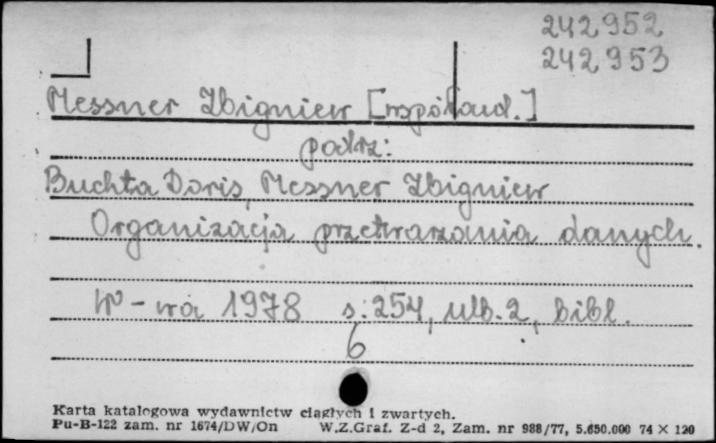 242952
242953
Messner Zbigniew [współaud.]
patrz:
Buchta Doris, Messner Zbigniew
Organizacja przetwarzania danych.
W-wa 1978 s. 254, nlb. 2, bibl.
6
Karta katalogowa wydawnictw ciągłych i zwartych.
Pu-B-122 zam. nr 1674/DW/On W.Z.Graf. Z-d 2, Zam. nr 988/77, 5.650.000 74 X 120